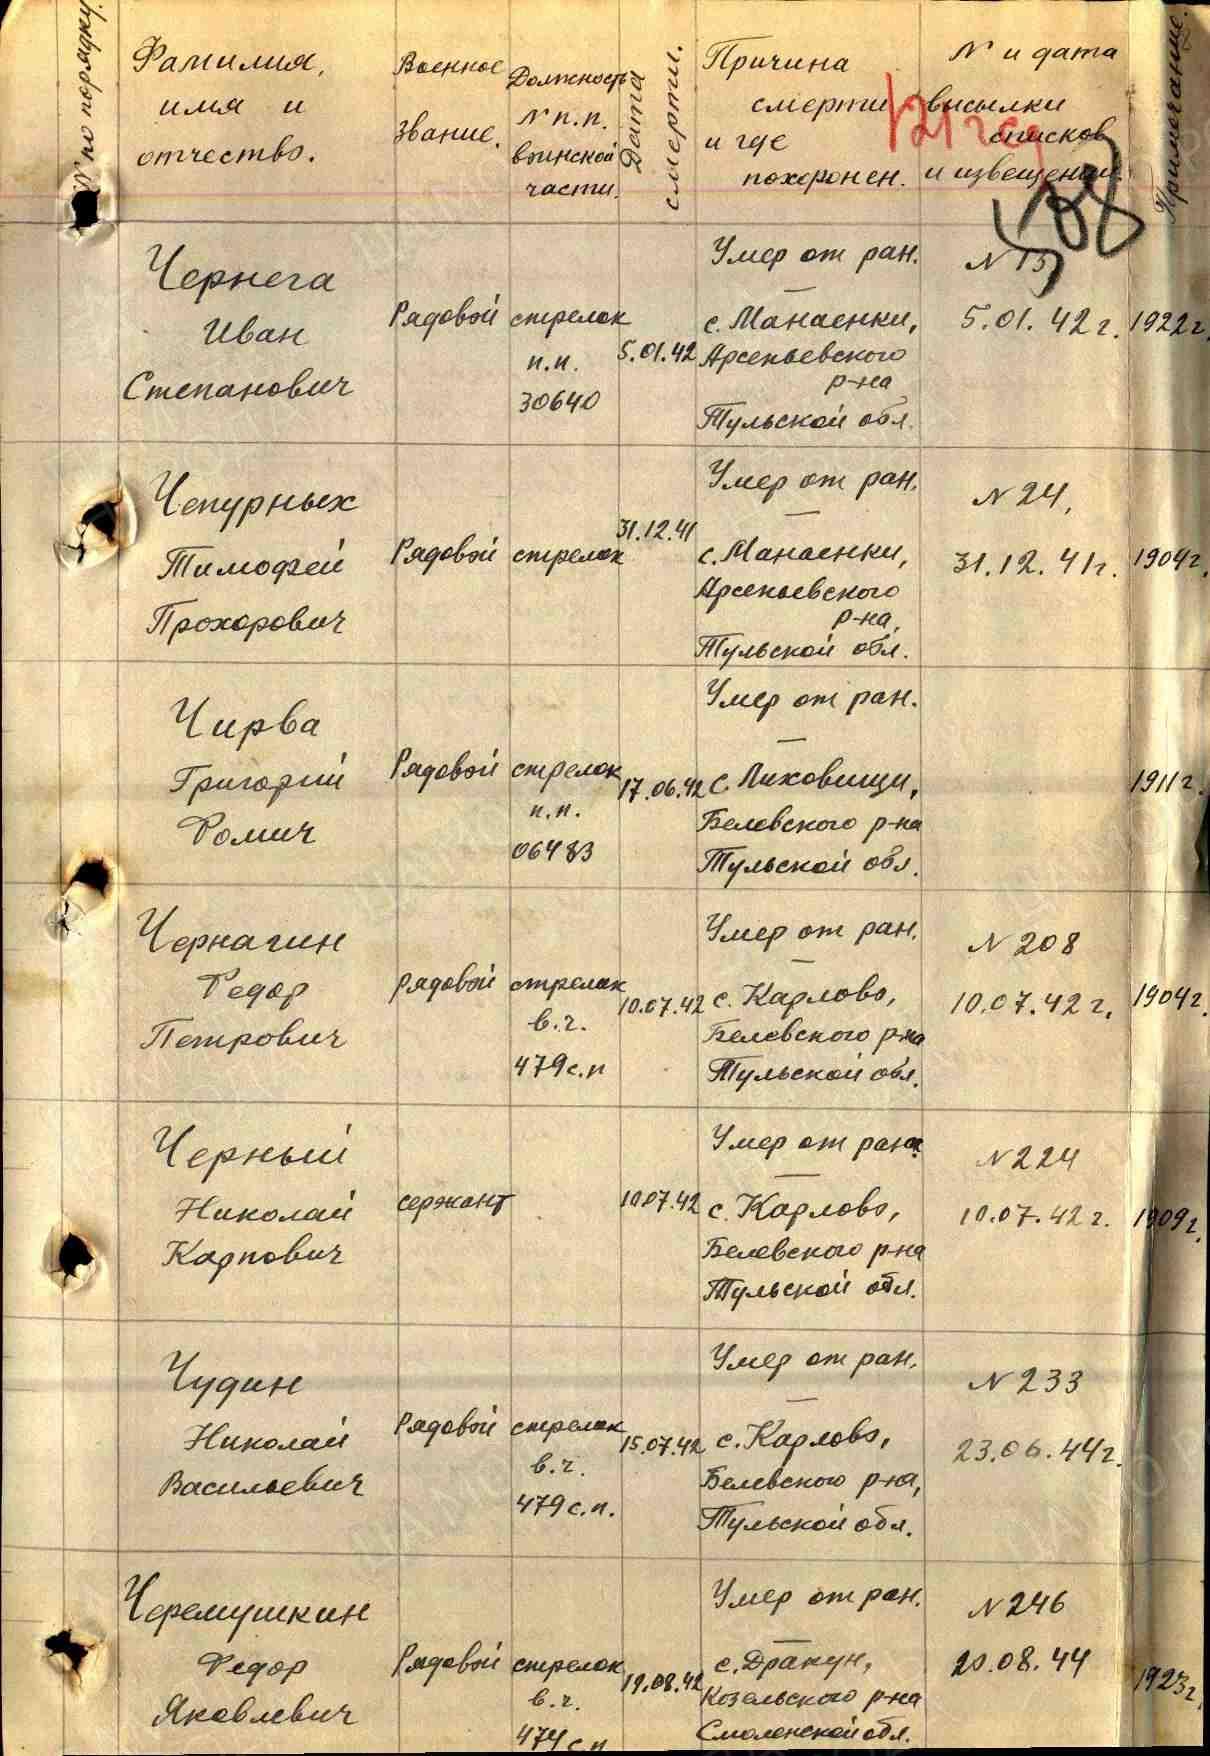 № по порядку.
Фамилия,
имя и
отчество.
Военное
звание.
Должность
№ п.п.
воинской
части.
Дата
смерти.
Причина
смерти
и где
похоронен.
№ и дата
высылки
списков
и извещений.
Примечание.
Чернега
Иван
Степанович
Рядовой
стрелок
п.п.
30640
5.01.42
Умер от ран.
с. Манаенки,
Арсеньевского
р-на
Тульской обл.
5.01.42 г.
1922 г.
Чепурных
Тимофей
Прохорович
Рядовой
стрелок
31.12.41
Умер от ран.
с. Манаенки,
Арсеньевского
р-на,
Тульской обл.
№ 24,
31.12.41 г.
1904 г.
Чирва
Григорий
Фомич
Рядовой
стрелок
п.п.
06483
17.06.42
Умер от ран.
с. Лиховищи,
Белевского р-на
Тульской обл.
1911 г.
Чернагин
Федор
Петрович
Рядовой
стрелок
в.г.
479 с.п
10.07.42
Умер от ран.
с. Карлово,
Белевского р-на
Тульской обл.
№ 208
10.07.42 г.
1904 г.
Черный
Николай
Карпович
сержант
10.07.42
Умер от ран.
с. Карлово,
Белевского р-на
Тульской обл.
№ 224
10.07.42 г.
1909 г.
Чудин
Николай
Васильевич
Рядовой
стрелок
в.ч.
479 с.п.
15.07.42
Умер от ран.
с. Карлово,
Белевского р-на,
Тульской обл.
№ 233
23.06.44 г.
Черемушкин
Федор
Яковлевич
Рядовой
стрелок
в.г.
474 с.п
19.08.42
Умер от ран.
с. Дракун,
Козельского р-на
Смоленской обл.
№ 246
20.08.44
1923 г.